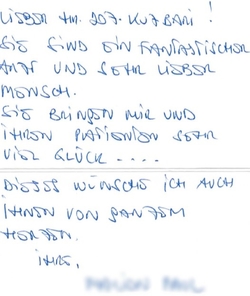 LIEBER HR. DOZ. KUZBARI!
SIE SIND EIN FANTASTISCHER
ARZT UND SEHR LIEBER
MENSCH.
SIE BRINGEN MIR UND
IHREN PATIENTEN SEHR
VIEL GLÜCK ....
DIESES WÜNSCHE ICH AUCH
IHNEN VON GANZEM
HERZEN.
IHRE,